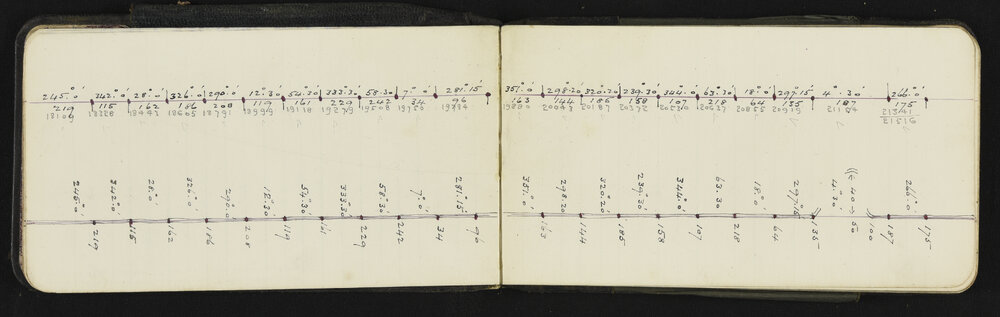 245°.0' 342°.0' 28°.0' 326°.0' 290°.0' 12°.30 54.30 333.30 58.30 7°.0' 281.15'
219 115 162 186 208 119 161 229 242 34 96
18109 18328 18443 18605 18791 18999 19118 19279 19508 19750 19784
351°.0' 298.20 320.20' 239.30 344.0' 63.30' 18°.0' 297.15' 4°.30' 266°.0'
163 144 185 158 107 218 64 135 187 175
19880 20043 20187 20372 20530 20637 20855 20919 21154 21341
21516
245°.0' 342°.0 28°.0' 326°.0' 290°.0 12°.30 54.30 333.30 58.30 7°.0' 281°.15'
219 115 162 186 208 119 161 229 242 34 96
351°.0' 298.20 320.20' 239.30' 344°.0' 63.30 18°.0' 297°.15 4°.30 40 266°.0'
163 144 185 158 107 218 64 135 50 100 187 175